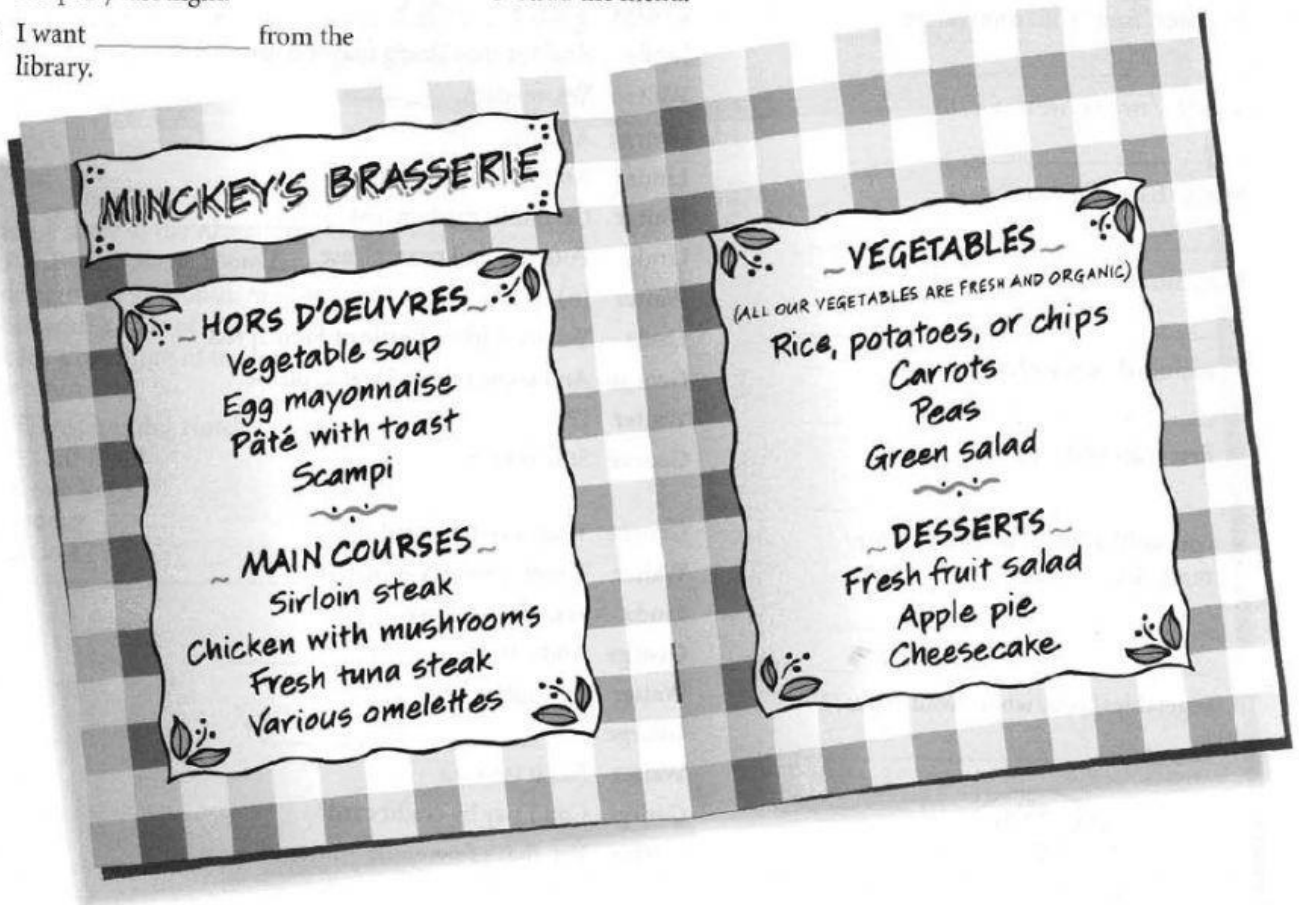 I want __________ from the
library.
MINCKEY'S BRASSERIE
HORS D'OEUVRES
Vegetable soup
Egg mayonnaise
Pâté with toast
Scampi
MAIN COURSES
Sirloin steak
Chicken with mushrooms
Fresh tuna steak
Various omelettes
VEGETABLES
(ALL OUR VEGETABLES ARE FRESH AND ORGANIC)
Rice, potatoes, or chips
Carrots
Peas
Green salad
DESSERTS
Fresh fruit salad
Apple pie
Cheesecake